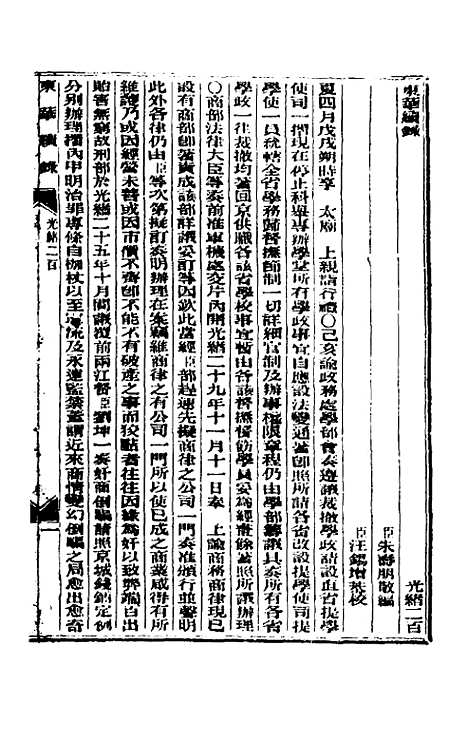 東華續錄
光緒二百
臣朱壽朋敬編
臣汪錫增恭校
夏四月戊戌朔時享　太廟　上親詣行禮〇己亥諭政務處學部會奏遵議裁撤學政請設直省提學
使司一摺現在停止科舉專辦學堂所有學政事宜自應設法變通著即照所請各省改設提學使司提
學使一員統轄全省學務歸督撫節制一切詳細官制及辦事權限章程仍由學部籌議具奏所有各省
學政一律裁撤均著回京供職各該省學校事宜暫由各該督撫督飭學務員妥為經畫督
〇商部法律大臣等奏前准軍機處交片內開光緒二十九年十一月十一日奉　上諭商務商律現已
設有商部即著責成該部詳議妥訂等因欽此當經臣部趕速先擬商律之公司一門奏准頒行並聲明
此外各律仍由臣等次第擬訂奏明辦理在案竊維商律之有公司一門所以使已成之商業咸得有所
維護乃或因經營未善或因市價不齊即不能不有破產之事而狡黠者往往因緣為奸以致弊端百出
貽害無窮故刑部於光緒二十五年十月間議覆前兩江督臣劉坤一奏奸商倒騙請照京城錢鋪定例
分別辦理摺內申明治罪專條自枷杖以至軍流及永遠監禁蓋謂近來商情變幻倒騙之局愈出愈奇
東華續錄
光緒二百
一